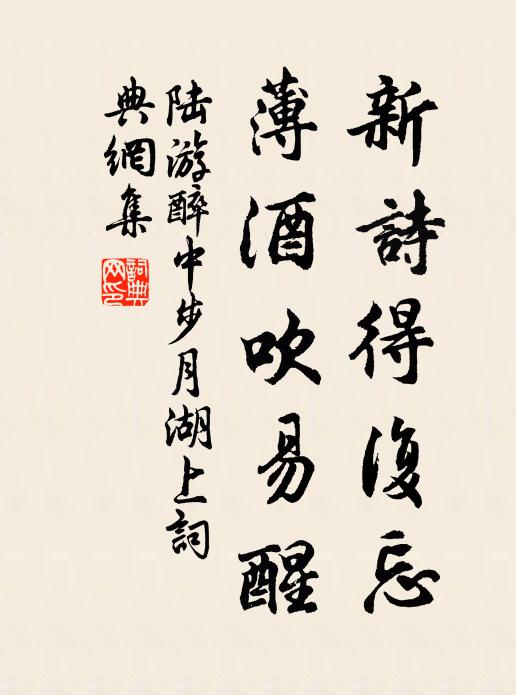 新詩得復忘
薄酒吹易醒
陸游醉中步月湖上詞
典網集
詞典
网印